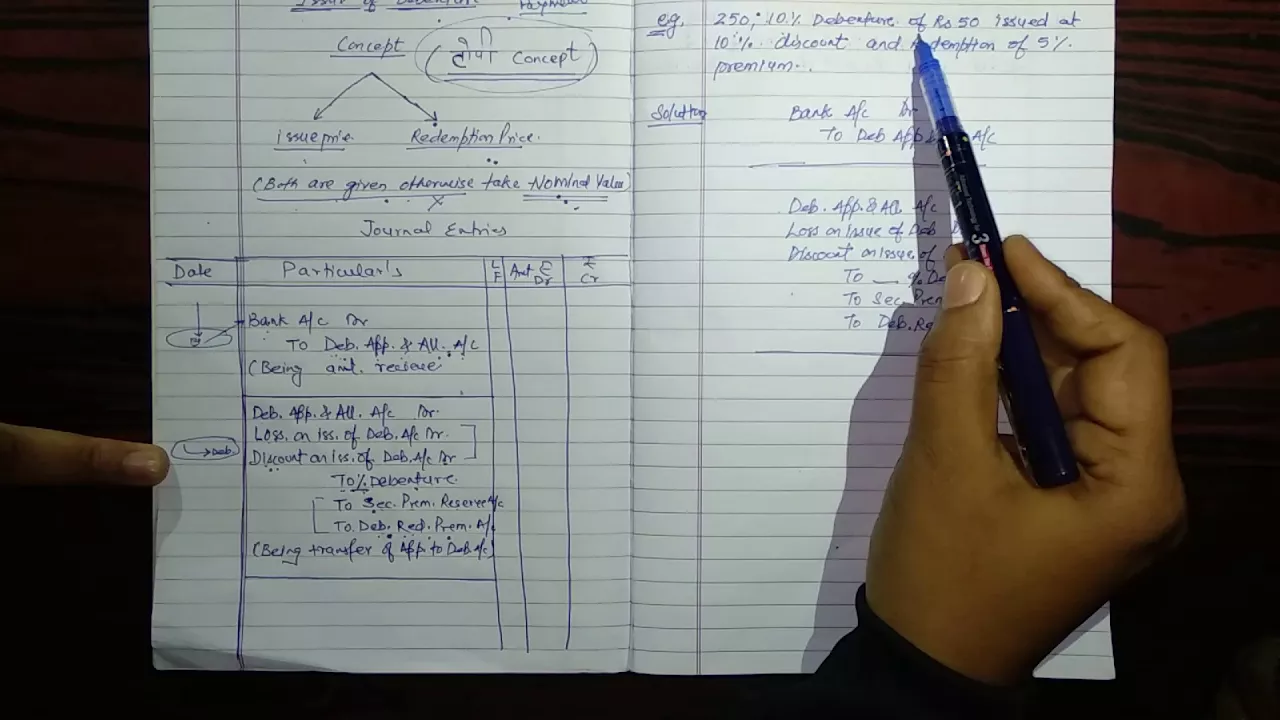 Issue of Debenture
Concept
टोपी Concept
Issue price. Redemption Price.
(Both are given otherwise take Nominal Value)
X
Journal Entries
Date Particular's L F Amt ₹ Dr ₹ Cr
Bank A/c Dr
To Deb. App. & All. A/c
(Being amt. receive
Deb. App. & All. A/c Dr.
Loss. on iss. of Deb. A/c Dr.
→Deb.
Discount on iss. of Deb. A/c Dr
To % Debenture.
To Sec. Prem. Reserve A/c
To Deb. Red. Prem. A/c
(Being transfer of App. to Deb. A/c)
eg. 250, 10% Debenture of Rs 50 issued at
10% discount and redemption of 5%
premium..
Solution Bank A/c Dr
To Deb App A/c
Deb. App. & All. A/c
Loss on issue of Deb
Discount on issue of
To __ % De
To Sec. Prem
To Deb. Re